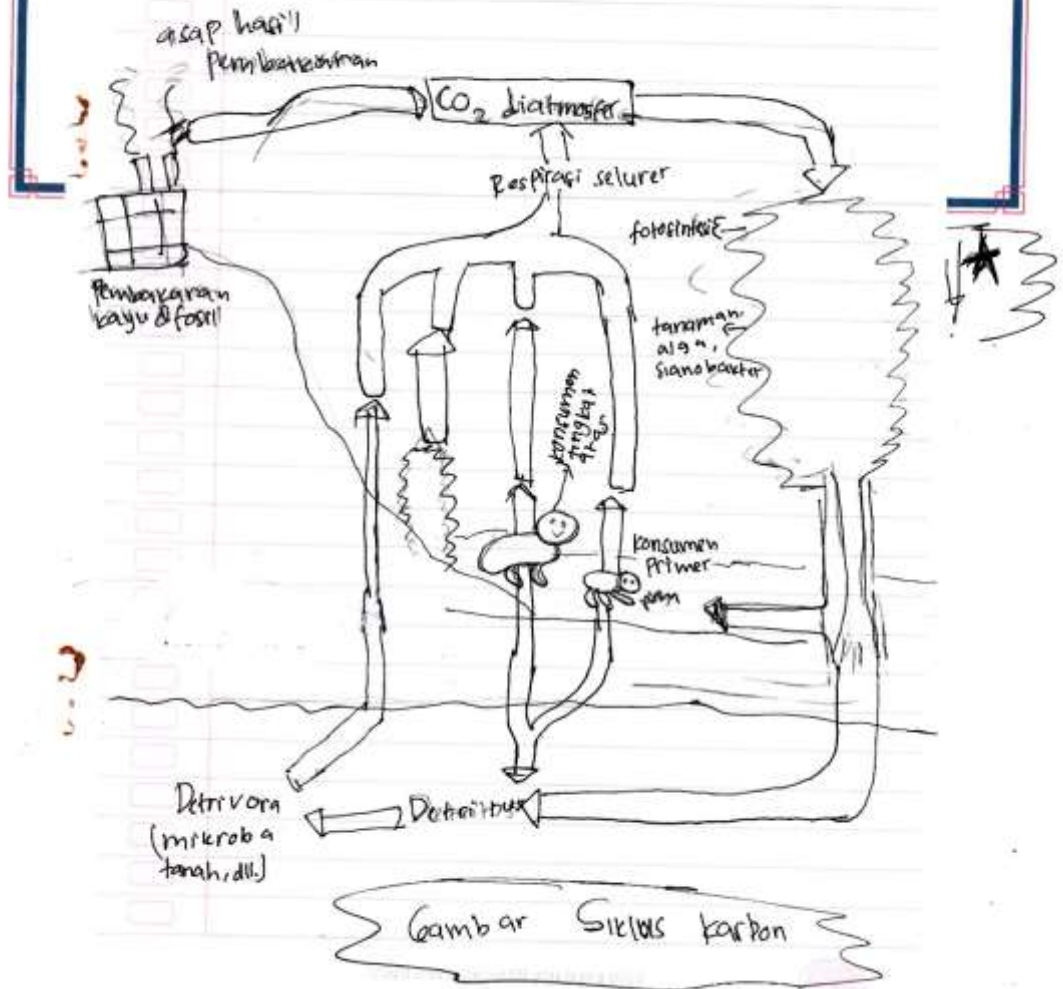 asap hasil
pembakaran
CO₂ diatmosfer
Respirasi seluler
fotosintesis
pembakaran
kayu & fosil
tanaman,
alga,
sianobakter
konsumen
tingkat
konsumen
primer
Detrivora
(mikroba
tanah, dll.)
Detritus
Gambar Siklus karbon